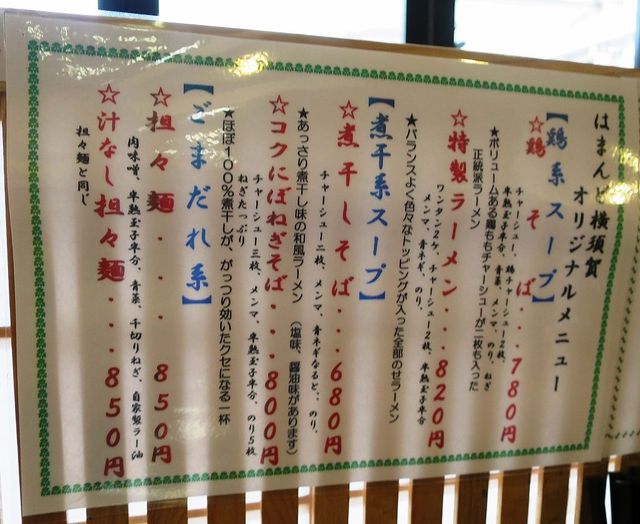 はまんど横須賀
オリジナルメニュー
【鶏系スープ】
☆鶏そば・・・780円
チャーシュー、鶏チャーシュー2枚、
半熟玉子半分、青菜、メンマ、のり、ねぎ
★ボリュームある鶏ももチャーシューが二枚も入った
正統派ラーメン
☆特製ラーメン・・・820円
ワンタン2ケ、チャーシュー2枚、半熟玉子半分
メンマ、青ネギ、のり、
★バランスよく色々なトッピングが入った全部のせラーメン
【煮干系スープ】
☆煮干しそば・・・680円
チャーシュー二枚、メンマ、青ネギなると、、のり、
★あっさり煮干し味の和風ラーメン （塩味、醤油味があります）
☆コクにぼねぎそば・・・800円
チャーシュー三枚、メンマ、半熟玉子半分、のり5枚
ねぎたっぷり
★ほぼ100％煮干しが、がっつり効いたクセになる一杯
【ごまだれ系】
☆担々麺・・・・850円
肉味噌、半熟玉子半分、青菜、千切りねぎ、自家製ラー油
☆汁なし担々麺・・・850円
担々麺と同じ